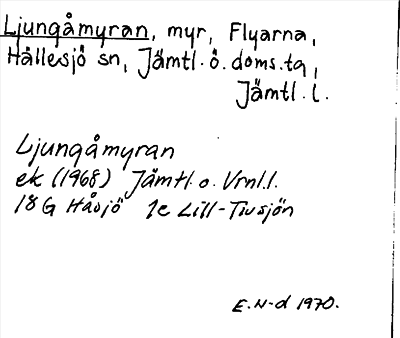 Ljungåmyran, myr, Flyarna,
Hällesjö sn, Jämtl. ö. doms.tg,
Jämtl. l.
Ljungåmyran
ek (1968) Jämtl. o. Vrnl.l.
18G Håsjö 1e Lill-Tivsjön
E.N-d 1970.